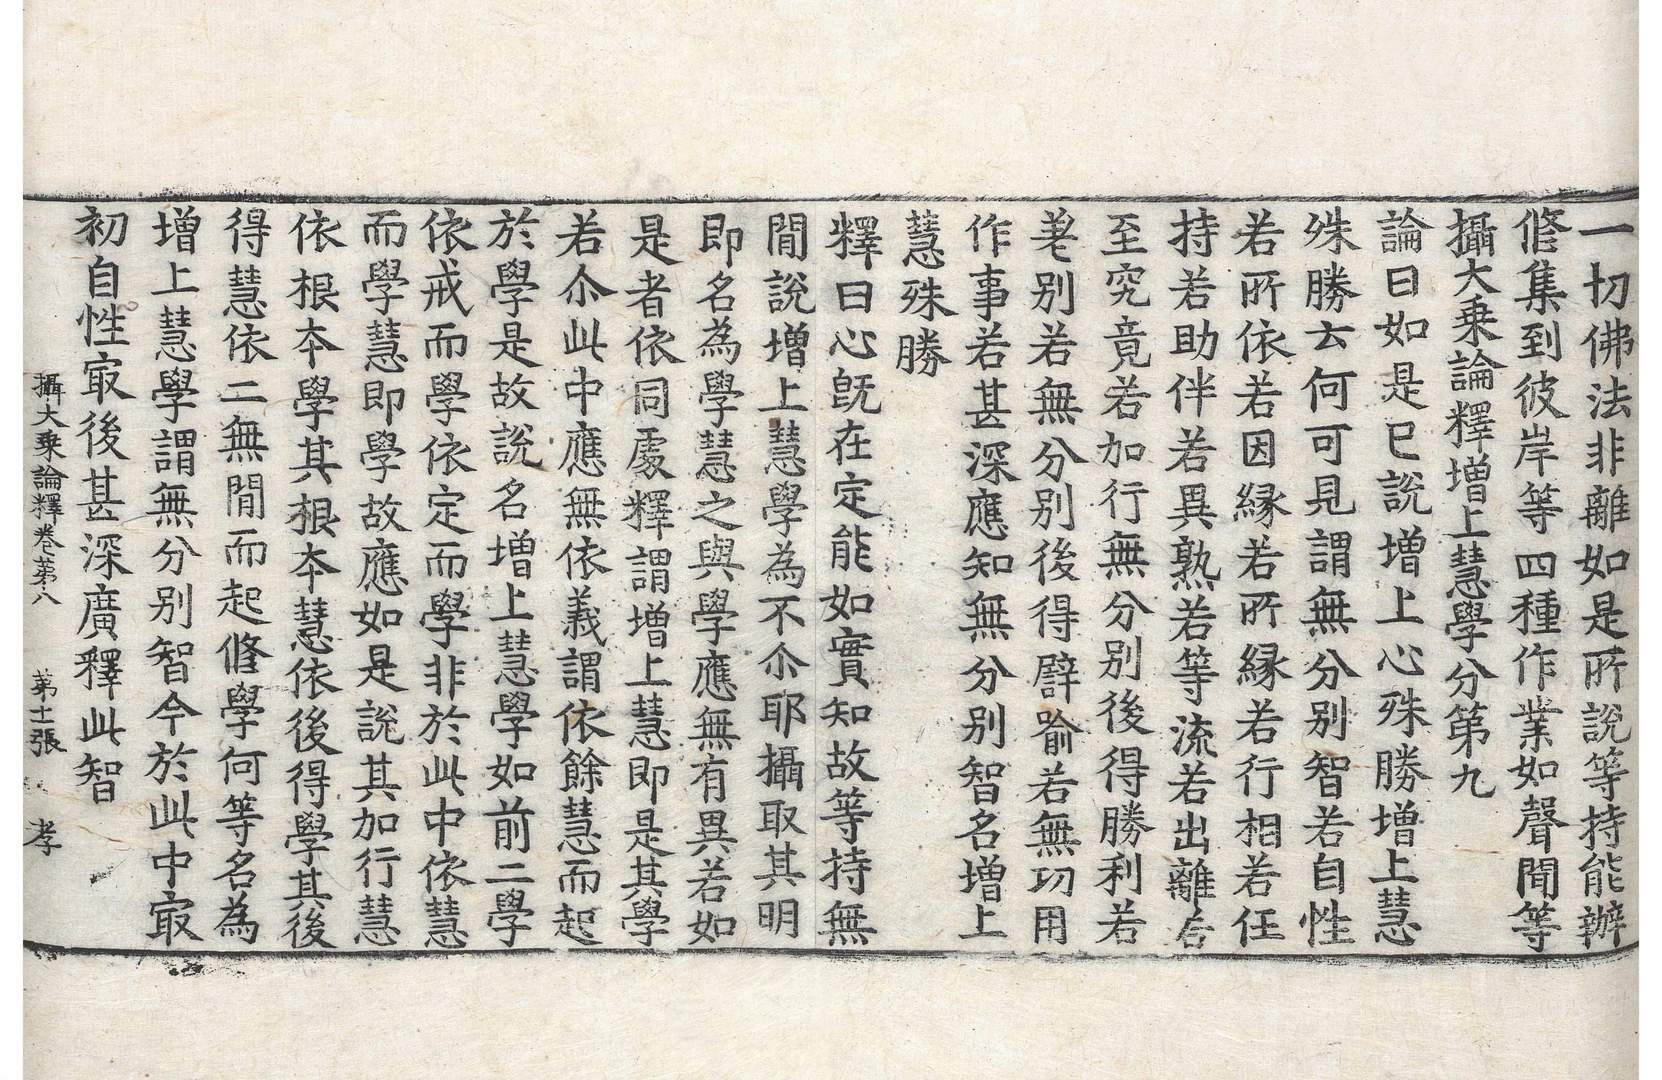 一切佛法非離如是所說等持能辦
修集到彼岸等四種作業如聲聞等
攝大乗論釋增上慧學分第九
論曰如是已說增上心殊勝增上慧
殊勝云何可見謂無分別智若自性
若所依若因縁若所縁若行相若任
持若助伴若異熟若等流若出離若
至究竟若加行無分別後得勝利若
差別若無分別後得譬喻若無功用
作事若甚深應知無分別智名增上
慧殊勝
釋曰心旣在定能如實知故等持無
間說增上慧學為不尒耶攝取其明
即名為學慧之與學應無有異若如
是者依同處釋謂增上慧即是其學
若尒此中應無依義謂依餘慧而起
於學是故說名增上慧學如前二學
依戒而學依定而學非於此中依慧
而學慧即學故應如是說其加行慧
依根本學其根本慧依後得學其後
得慧依二無間而起修學何等名為
增上慧學謂無分別智今於此中㝡
初自性㝡後甚深廣釋此智
攝大乗論釋卷苐八 苐十張 孝